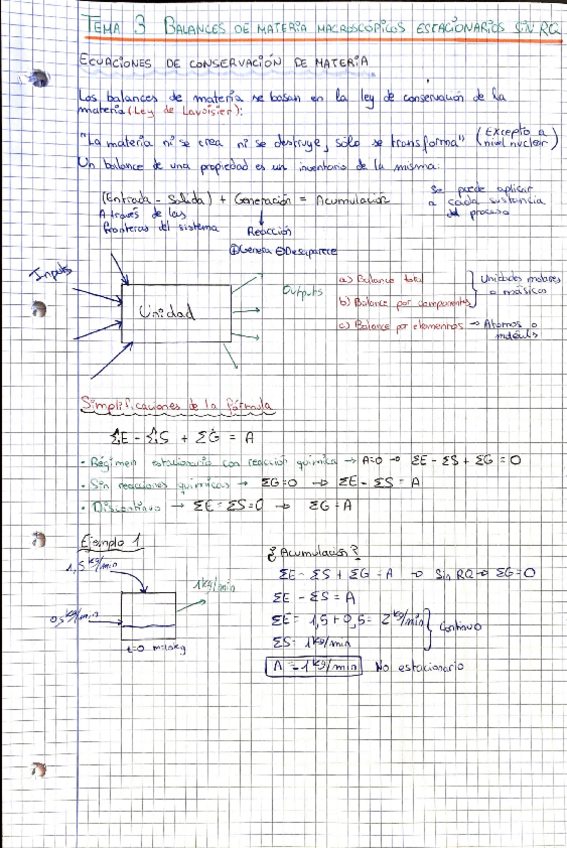 TEMA 3 BALANCES DE MATERIA MACROSCÓPICOS ESTACIONARIOS SIN RQ
ECUACIONES DE CONSERVACIÓN DE MATERIA
Los balances de materia se basan en la ley de conservación de la
materia (Ley de Lavoisier):
"La materia ni se crea ni se destruye, sólo se transforma" (Excepto a
nivel nuclear)
Un balance de una propiedad es un inventario de la misma:
(Entrada - Salida) + Generación = Acumulación
Se puede aplicar
a cada sustancia
del proceso
A través de las
fronteras del sistema
Reacción
⊕Genera ⊖Desaparece
Inputs
Unidad
Outputs
a) Balance total
b) Balance por componentes
Unidades molares
o másicas
c) Balance por elementos → Átomos o
Simplificaciones de la fórmula
ΣE - ΣS + ΣG = A
· Régimen estacionario con reacción química → A=0 → ΣE - ΣS + ΣG = 0
· Sin reacciones químicas → ΣG=0 → ΣE - ΣS = A
· Discontinuo → ΣE = ΣS = 0 → ΣG = A
Ejemplo 1
1,5 kg/min
1 kg/min
0,5 kg/min
t=0 m=10kg
¿Acumulación?
ΣE - ΣS + ΣG = A → Sin RQ → ΣG=0
ΣE - ΣS = A
ΣE = 1,5 + 0,5 = 2 kg/min
ΣS = 1 kg/min
Continuo
A = 1 kg/min No estacionario